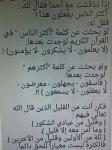 إذا ناقشت مع أحد فقال لك
أكثر الناس يفعلون هذا !!
لو بحثت عن كلمة "أكثر الناس" في
القرآن الكريم لوجدت بعدها
(لا يعلمون - لا يشكرون - لا يؤمنون) !
ولو بحثت عن كلمة "أكثرهم"
لوجدت بعدها :
( فاسقون - يجهلون - معرضون -
لا يعقلون - لا يسمعون ) !!
فكن أنت من القليل الذين قال الله
تعالى فيهم :
( وقليل من عبادي الشكور )
( وما آمن معه إلا قليل )
( ثلة من الأولين وقليل من الآخرين )